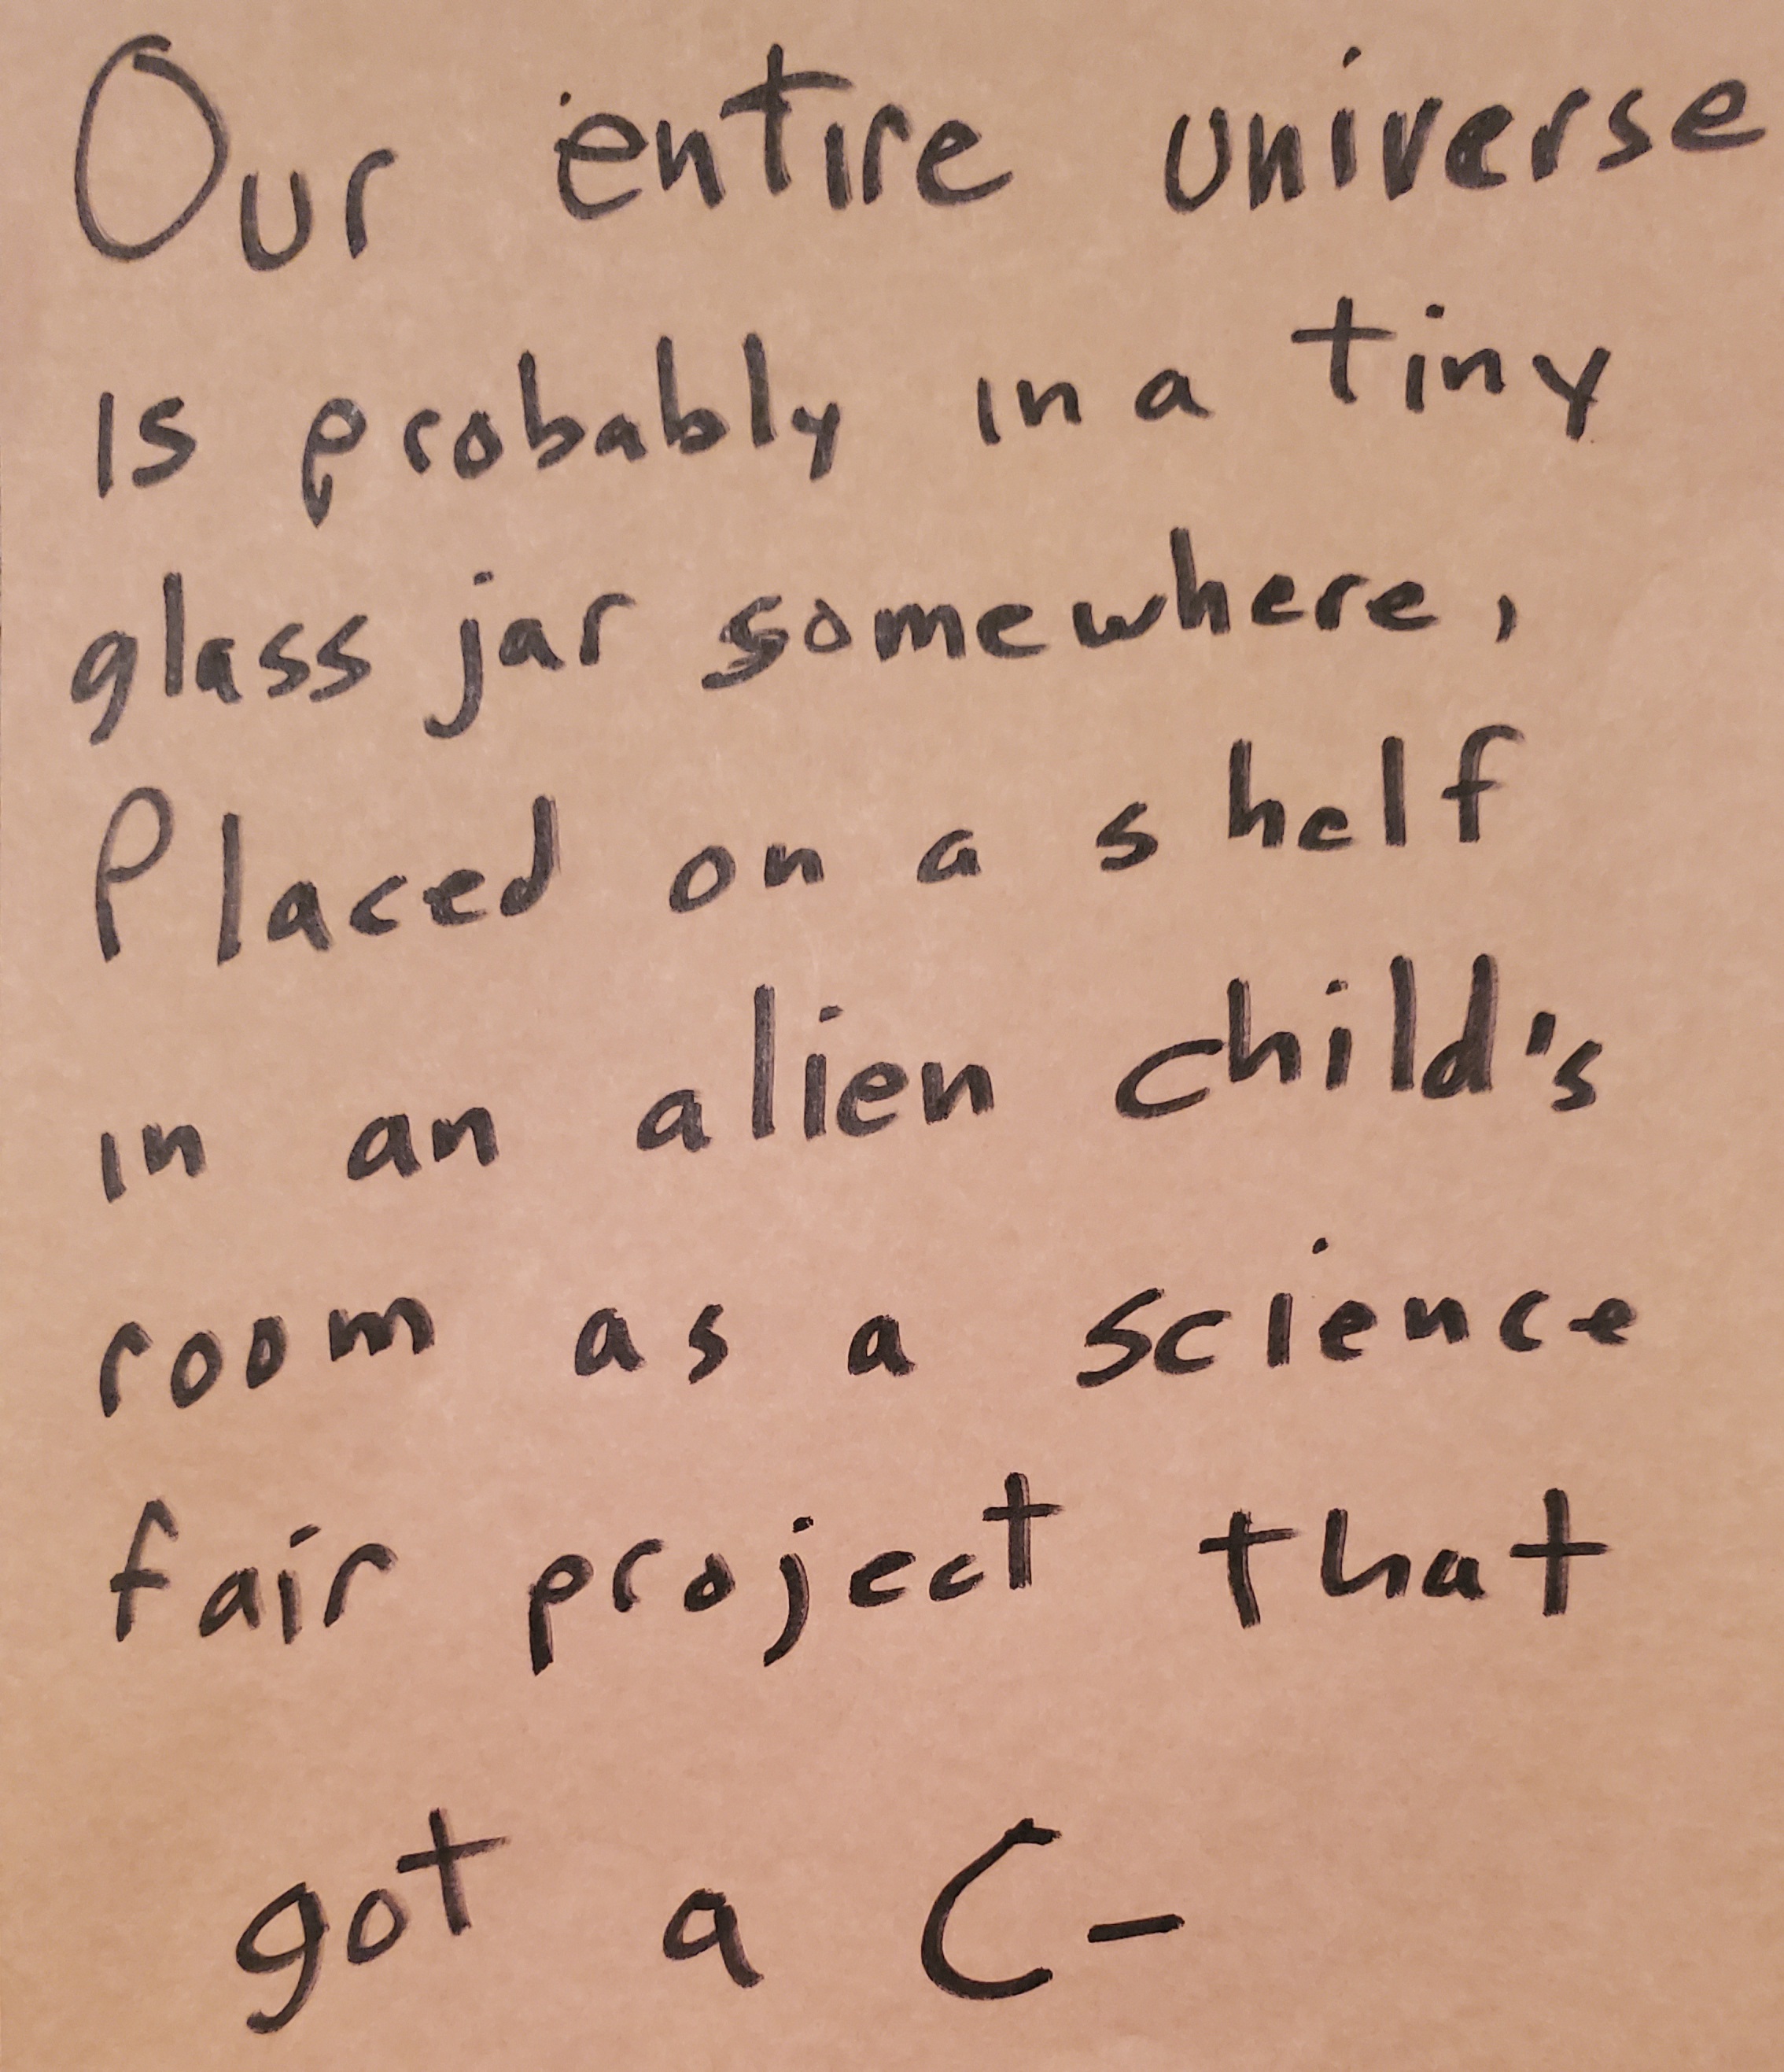 Our entire universe
is probably in a tiny
glass jar somewhere,
Placed on a shelf
in an alien child's
room as a science
fair project that
got a C-